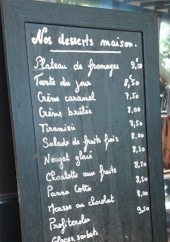 Nos desserts maison.
Plateau de fromages 9,50
Tarte du jour 8,50
Crème caramel 7,50
Crème brûlée 8,00
Tiramisu 8,50
Salade de fruits frais 8,00
Nougat glacé 8,50
Charlotte aux fruits 8,50
Panna Cotta 8,50
Mousse au chocolat 8,00
Profiteroles 9,50
Glaces sorbets